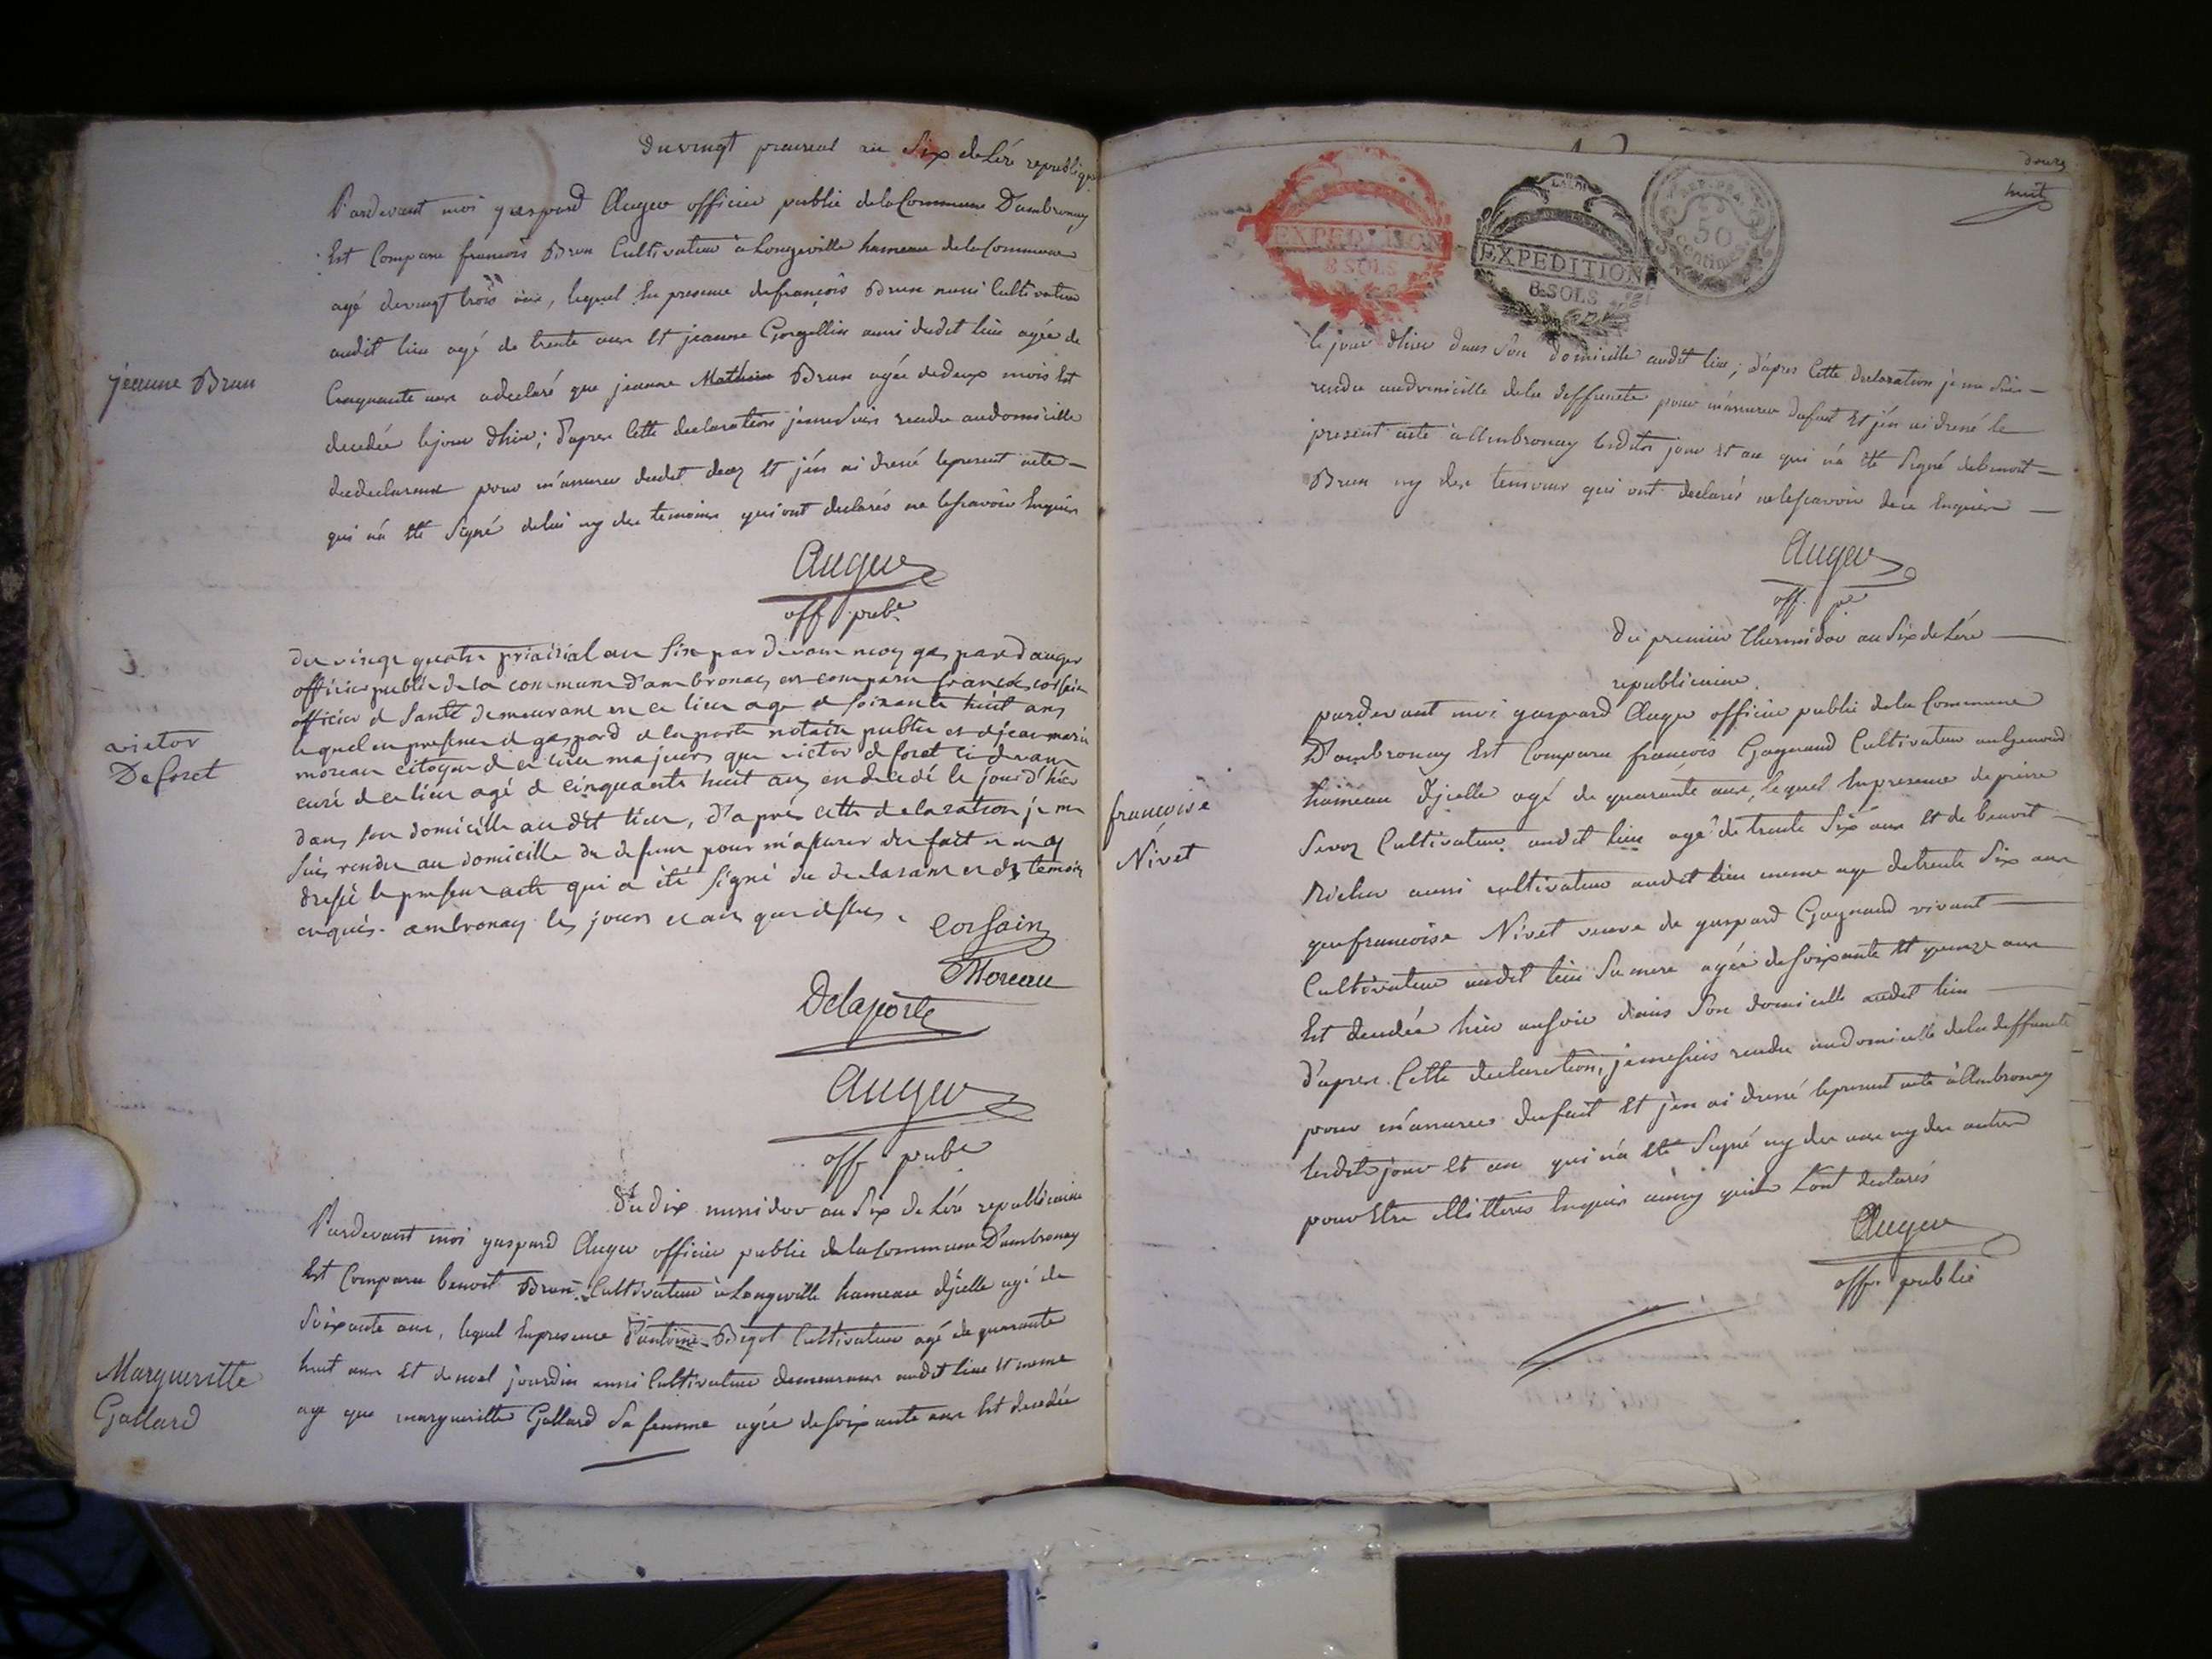 Du vingt prairial an Six de Lére republique
Pardevant moi gaspard Auger officier public de la Commune D'ambronay
Est Comparu francois Brun Cultivateur à Longeville hameau de la Commune
agé de vingt trois ans, lequel En presence de françois Brun aussi Cultivateur
audit lieu agé de trente ans Et jeanne Gorgellin aussi dudit lieu agée de
jeanne Brun
Cinquante ans a declaré que jeanne Brun agée de deux mois Est
decedée le jour d'hier; d'apres Cette declaration je me suis rendu au domicille
du declarant pour m'assurer dudet decez Et j'en ai dressé le present acte
qui n'a Eté Signé de lui ny des temoins qui ont declarés ne le scavoir Enquis
Auger
off pube
du vingt quatre prairial an six par devant moy gaspard auger
officier public de la commune d'ambronay est comparu francois corsain
officier de Santé demeurant en ce lieu age de soixante huit ans
lequel en presence de gaspard de la porte notaire public et de jean marie
victor
Deforet
moreau citoyen de ce lieu majeurs que victor de foret ci devant
curé de ce lieu agé de cinquante huit ans est decedé le jour d'hier
dans son domicille au dit lieu, d'aprés cette declaration je me
suis rendu au domicille du defunt pour m'assurer du fait et en ay
dressé le present acte qui a été signé du declarant et des temoins
enquis. ambronay les jours et an que dessus.
Corsain
Moreau
Delaporte
Auger
off pube
Du dix messidor an Six de Lére republicaine
Pardevant moi gaspard Auger officier public de la Commune D'ambronay
Est Comparu benoit Brun Cultivateur à Longeville hameau d'jcelle agé de
Soixante ans, lequel En presence d'antoine Bigot Cultivateur agé de quarante
Margueritte
Gallard
huit ans Et de noel jourdin aussi Cultivateur demeurans audit lieu Et meme
age que margueritte Gallard Sa femme agée de Soixante ans Est decedée
EXPEDITION
8 SOLS
EXPEDITION
8 SOLS
50
centimes
douze
huit
le jour d'hier dans Son domicille audit lieu; d'apres Cette declaration je me Suis
rendu au domicille de la deffuncte pour m'assurer du fait Et j'en ai dressé le
present acte à Ambronay lesdits jour Et an qui n'a Eté Signé de benoit
Brun ny des temoins qui ont declarés ne le scavoir de ce Enquis
Auger
off. pc
Du premier Thermidor an Six de Lére
republicaine
pardevant moi gaspard Auger officier public de la Commune
D'ambronay Est Comparu francois Gagnaud Cultivateur au Genoud
hameau d'jcelle agé de quarante ans, lequel En presence de pierre
francoise
Nivet
Cultivateur audit lieu agé de trente Six ans Et de benoit
aussi cultivateur audit lieu meme age de trente Six ans
que francoise Nivet veuve de gaspard Gagnaud vivant
Cultivateur audit lieu Sa mere agée de Soixante Et quinze ans
Est decedée hier au soir dans Son domicille audit lieu
d'apres Cette declaration, je me suis rendu au domicille de la deffuncte
pour m'assurer du fait Et j'en ai dressé le present acte à Ambronay
lesdits jour Et an qui n'a Eté Signé ny des uns ny des autres
pour Etre illitterés Enquis ainsy qu'ils L'ont declarés
Auger
off. public